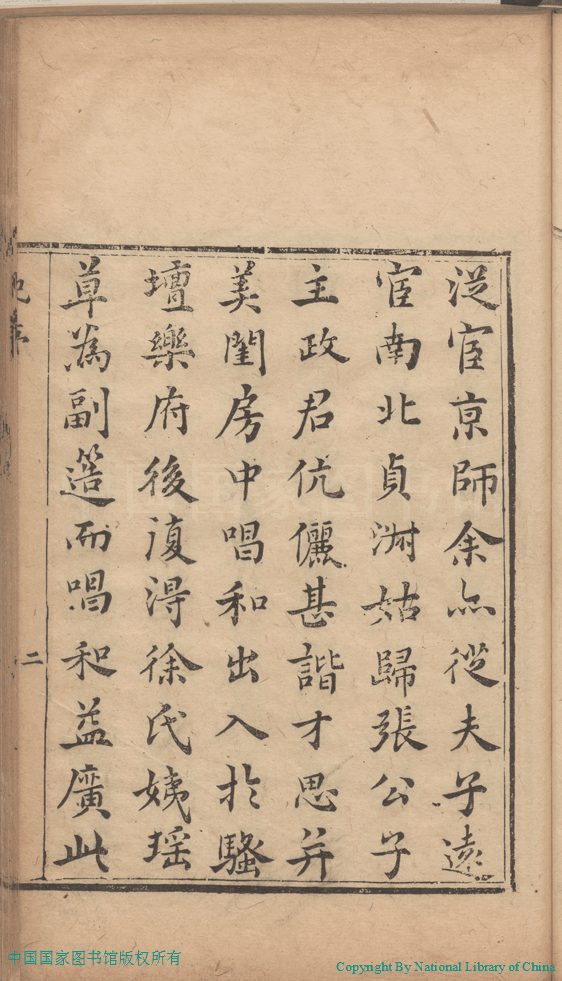 從宦京師余亦從夫子遠
宦南北貞淑姑歸張公子
主政君伉儷甚諧才思并
美閨房中唱和出入於騷
壇樂府後復得徐氏姨瑶
草為副簉而唱和益廣此
二
中国国家图书馆版权所有
Copyright By National Library of China